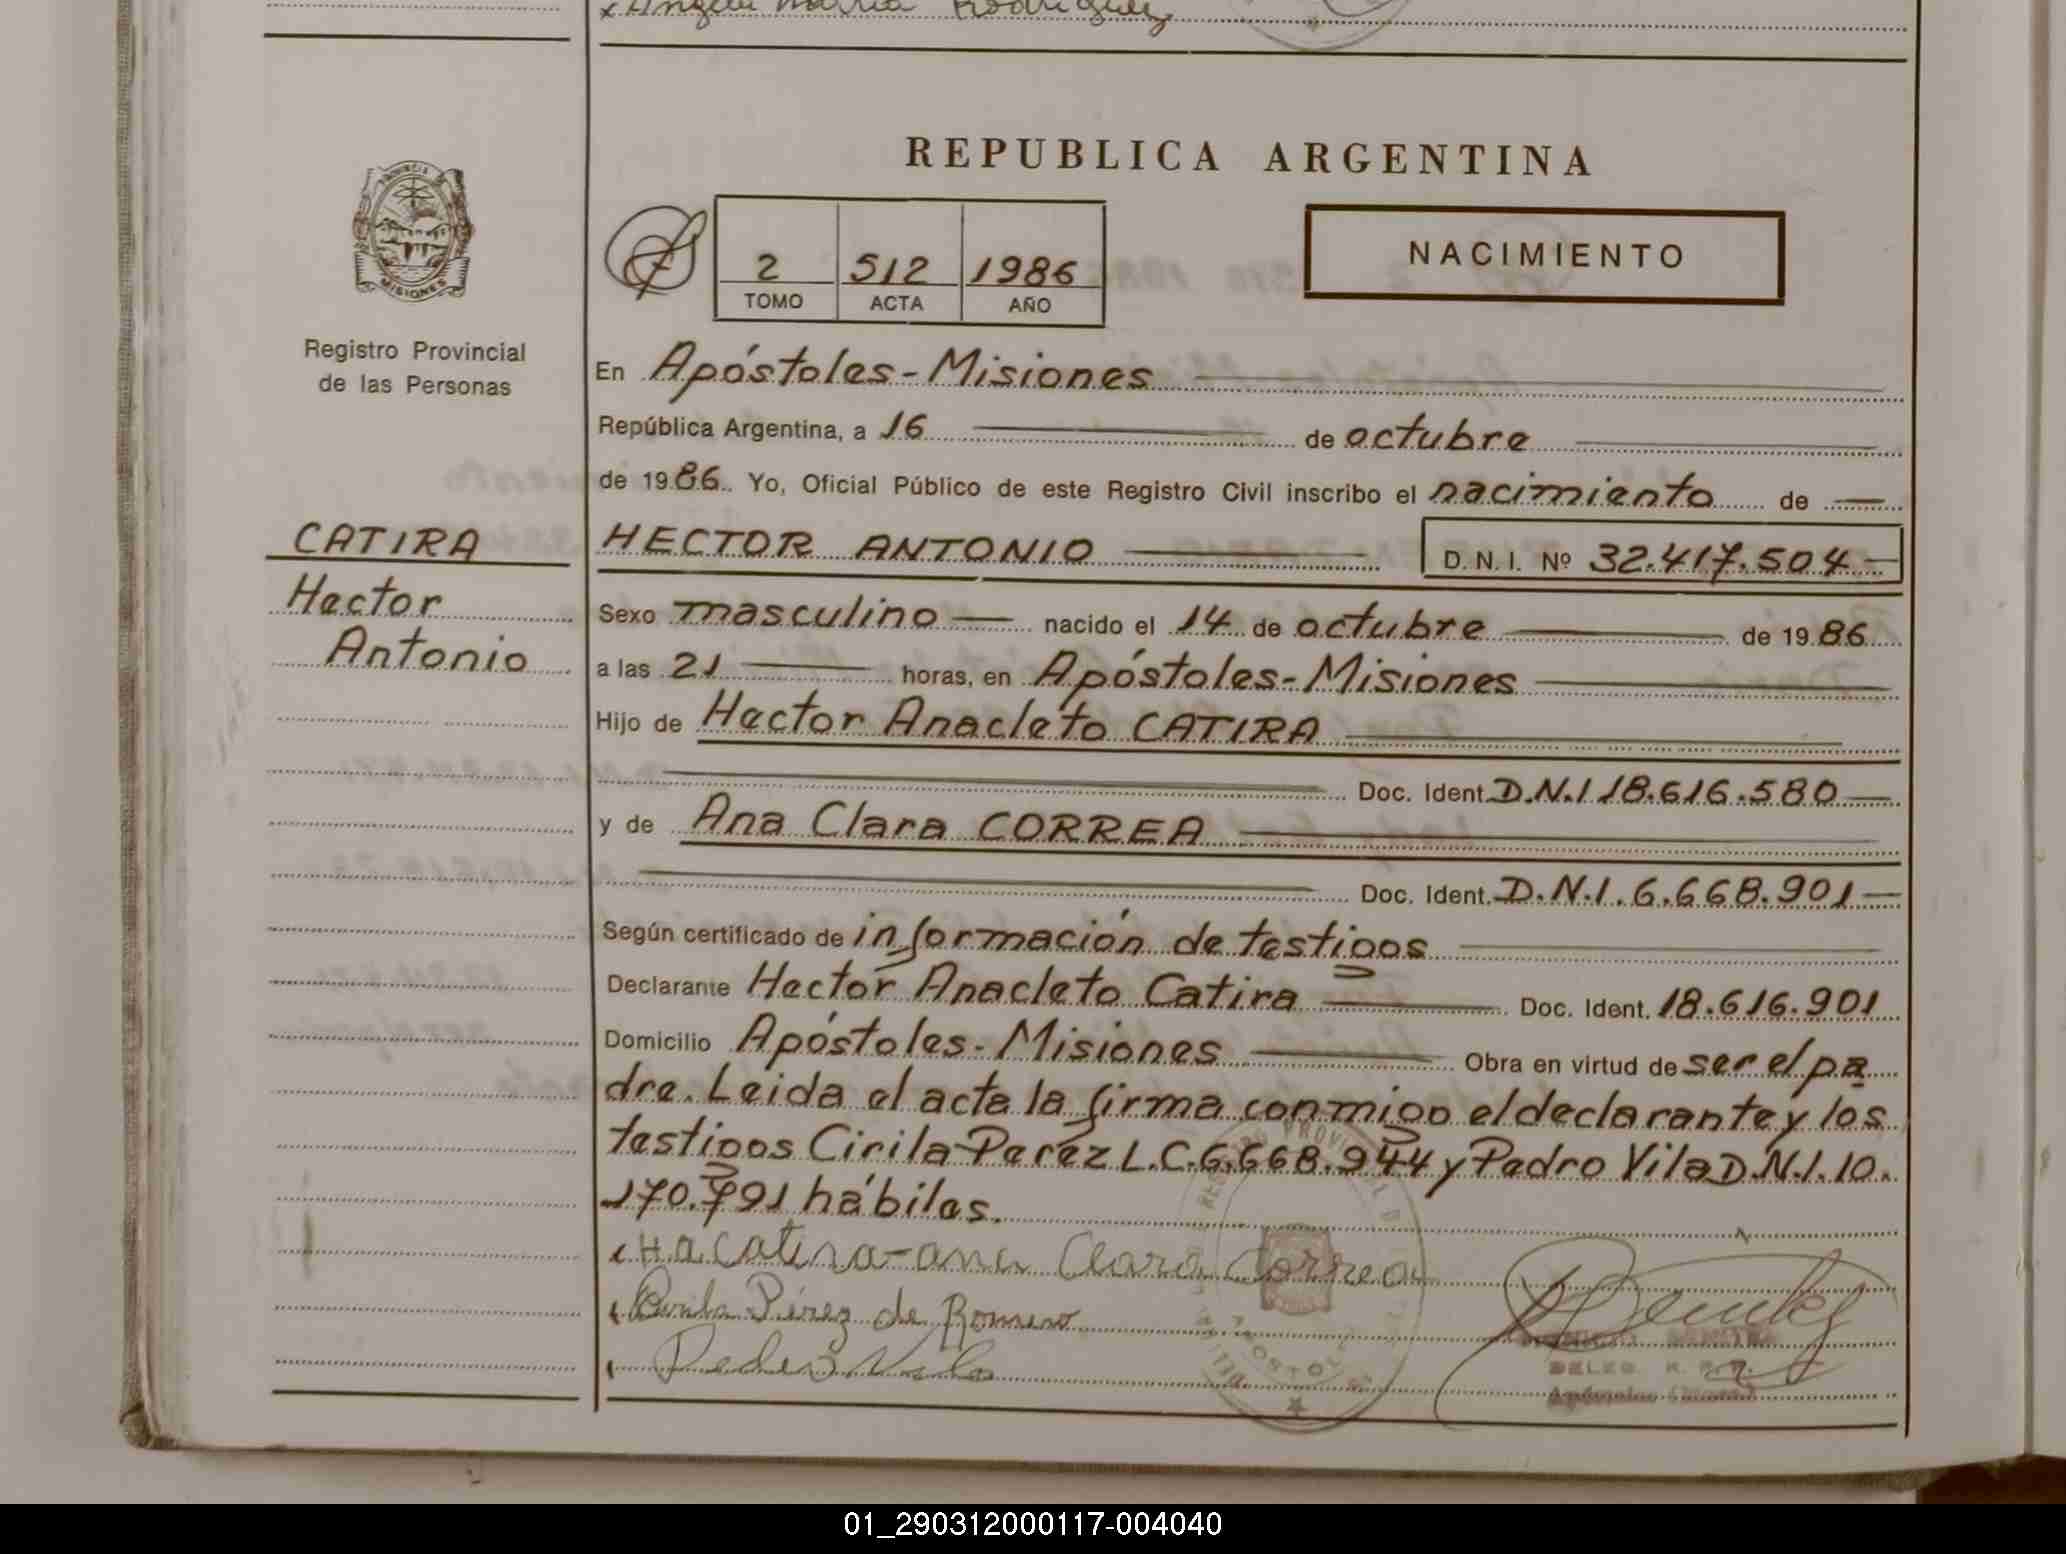 x Angela María Rodríguez
REPUBLICA ARGENTINA
PROVINCIA DE
MISIONES
Registro Provincial
de las Personas
2 512 1986
TOMO ACTA AÑO
NACIMIENTO
En Apóstoles-Misiones
República Argentina, a 16 de octubre
de 1986. Yo, Oficial Público de este Registro Civil inscribo el nacimiento de
CATIRA
Hector
Antonio
HECTOR ANTONIO D. N. I. Nº 32.417.504
Sexo masculino nacido el 14 de octubre de 1986
a las 21 horas, en Apóstoles-Misiones
Hijo de Hector Anacleto CATIRA
Doc. Ident. D.N.I 18.616.580
y de Ana Clara CORREA
Doc. Ident. D.N.I. 6.668.901
Según certificado de información de testigos
Declarante Hector Anacleto Catira Doc. Ident. 18.616.901
Domicilio Apóstoles-Misiones Obra en virtud de ser el pa
dre. Leida el acta la firma conmigo el declarante y los
testigos Cirila Peréz L.C.6.668.944 y Pedro Vila D.N.I.10.
170.791 hábiles.
x H.A. Catira-Ana Clara Correa
Cirila Pérez de Romero
Pedro Vila
DELEG. R. P. P.
Apóstoles (Mnes.)
01_290312000117-004040